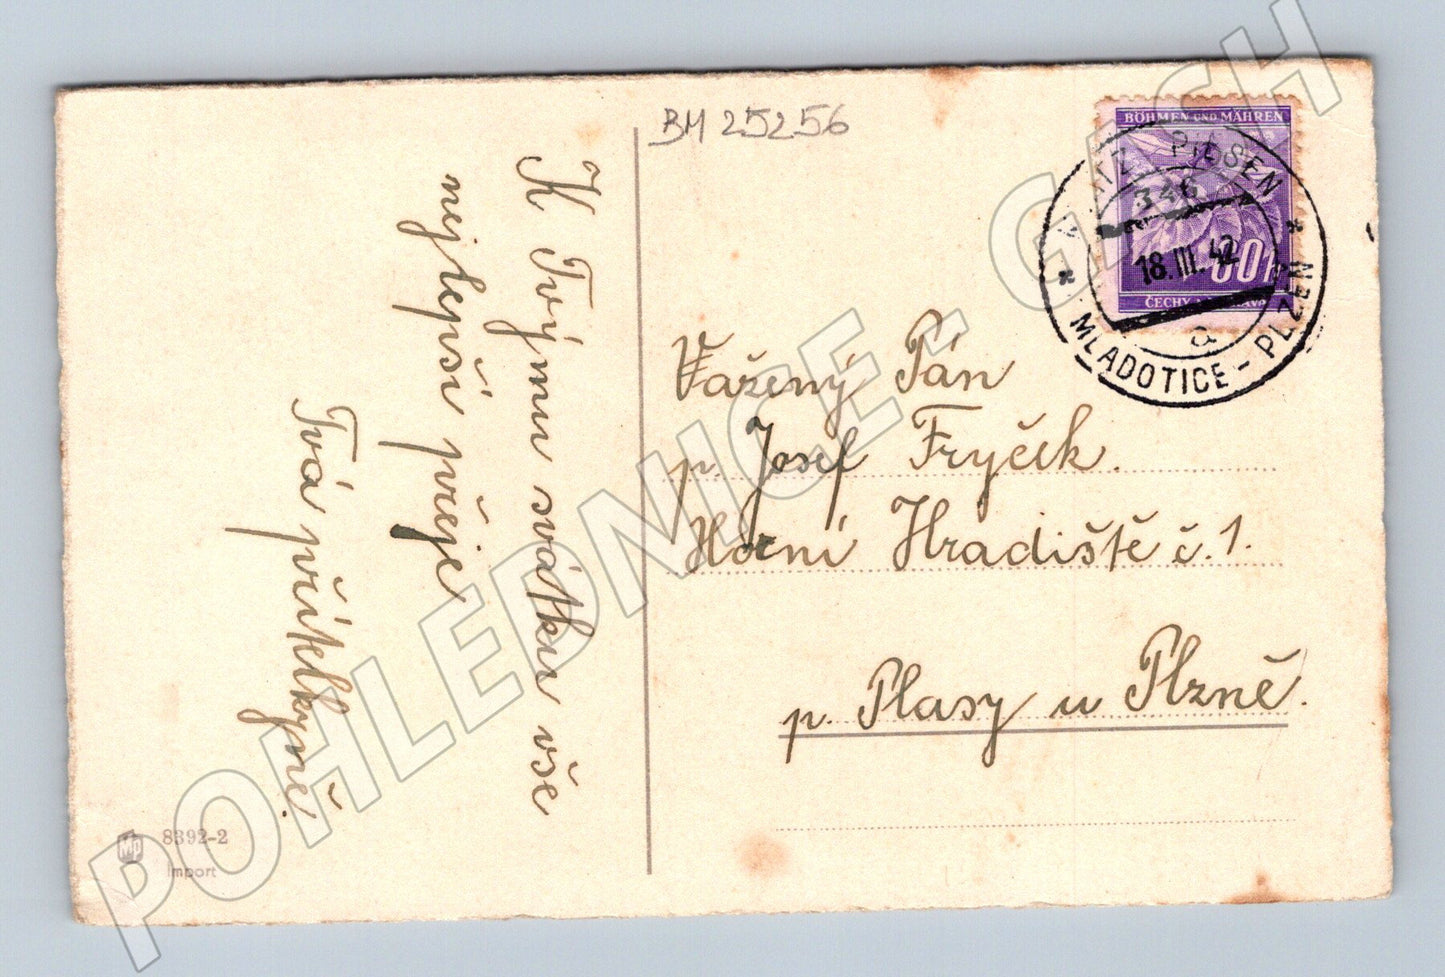 BM 25256
K Tvýmu svátku vše
nejlepší přeje
Tvá přítelkyně
Vážený Pán
p. Josef Fryčík.
Horní Hradiště č. 1.
p. Plasy u Plzně.
BÖHMEN UND MÄHREN
60
ČECHY
PILSEN
346
18.III.42
a
* MLADOTICE - PLZEN *
MP 8392-2
Import
POHLEDNICE - GASH